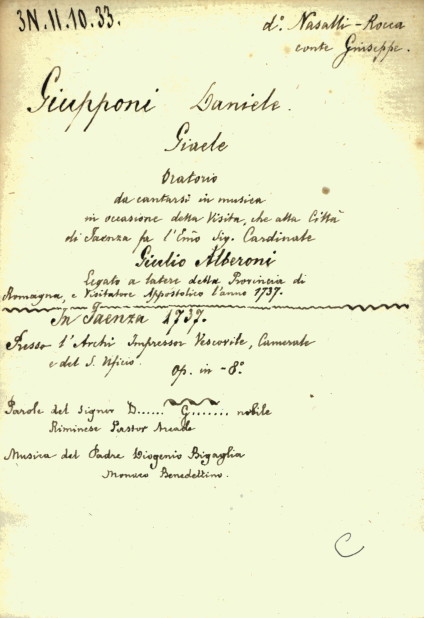 3N.11.10.33.
d.º Nasalli-Rocca
conte Giuseppe.
Giupponi Daniele.
Giaele
Oratorio
da cantarsi in musica
in occasione della Visita, che alla Città
di Faenza fa l'Emo Sig. Cardinale
Giulio Alberoni
Legato a latere della Provincia di
Romagna, e Visitatore Appostolico l'anno 1737.
In Faenza 1737.
Presso l'Archi Impressor Vescovile, Camerale
e del S. Ufficio.
Op. in -8º.
Parole del Signor D...... G....... nobile
Riminese Pastor Arcade
Musica del Padre Diogenio Bigaglia
Monaco Benedettino.
C